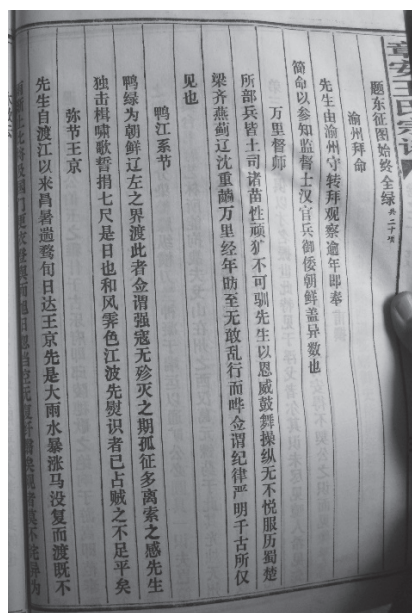 章安王氏宗谱
题东征图始终全绿 共二十项
渝州拜命
先生由渝州守转拜观察逾年即奉
简命以参知监督土汉官兵御倭朝鲜盖异数也
万里督师
所部兵皆土司诸苗性顽犷不可驯先生以恩威鼓舞操纵无不悦服历蜀楚
梁齐燕蓟辽沈重繭万里经年昉至无敢乱行而哗佥谓纪律严明千古所仅
见也
鸭江系节
鸭绿为朝鲜辽左之界渡此者佥谓强寇无殄灭之期孤征多离索之感先生
独击楫啸歌誓捐七尺是日也和风霁色江波先熨识者已占贼之不足平矣
弥节王京
先生自渡江以来昌暑遄骛旬日达王京先是大雨水暴涨马没复而渡既不